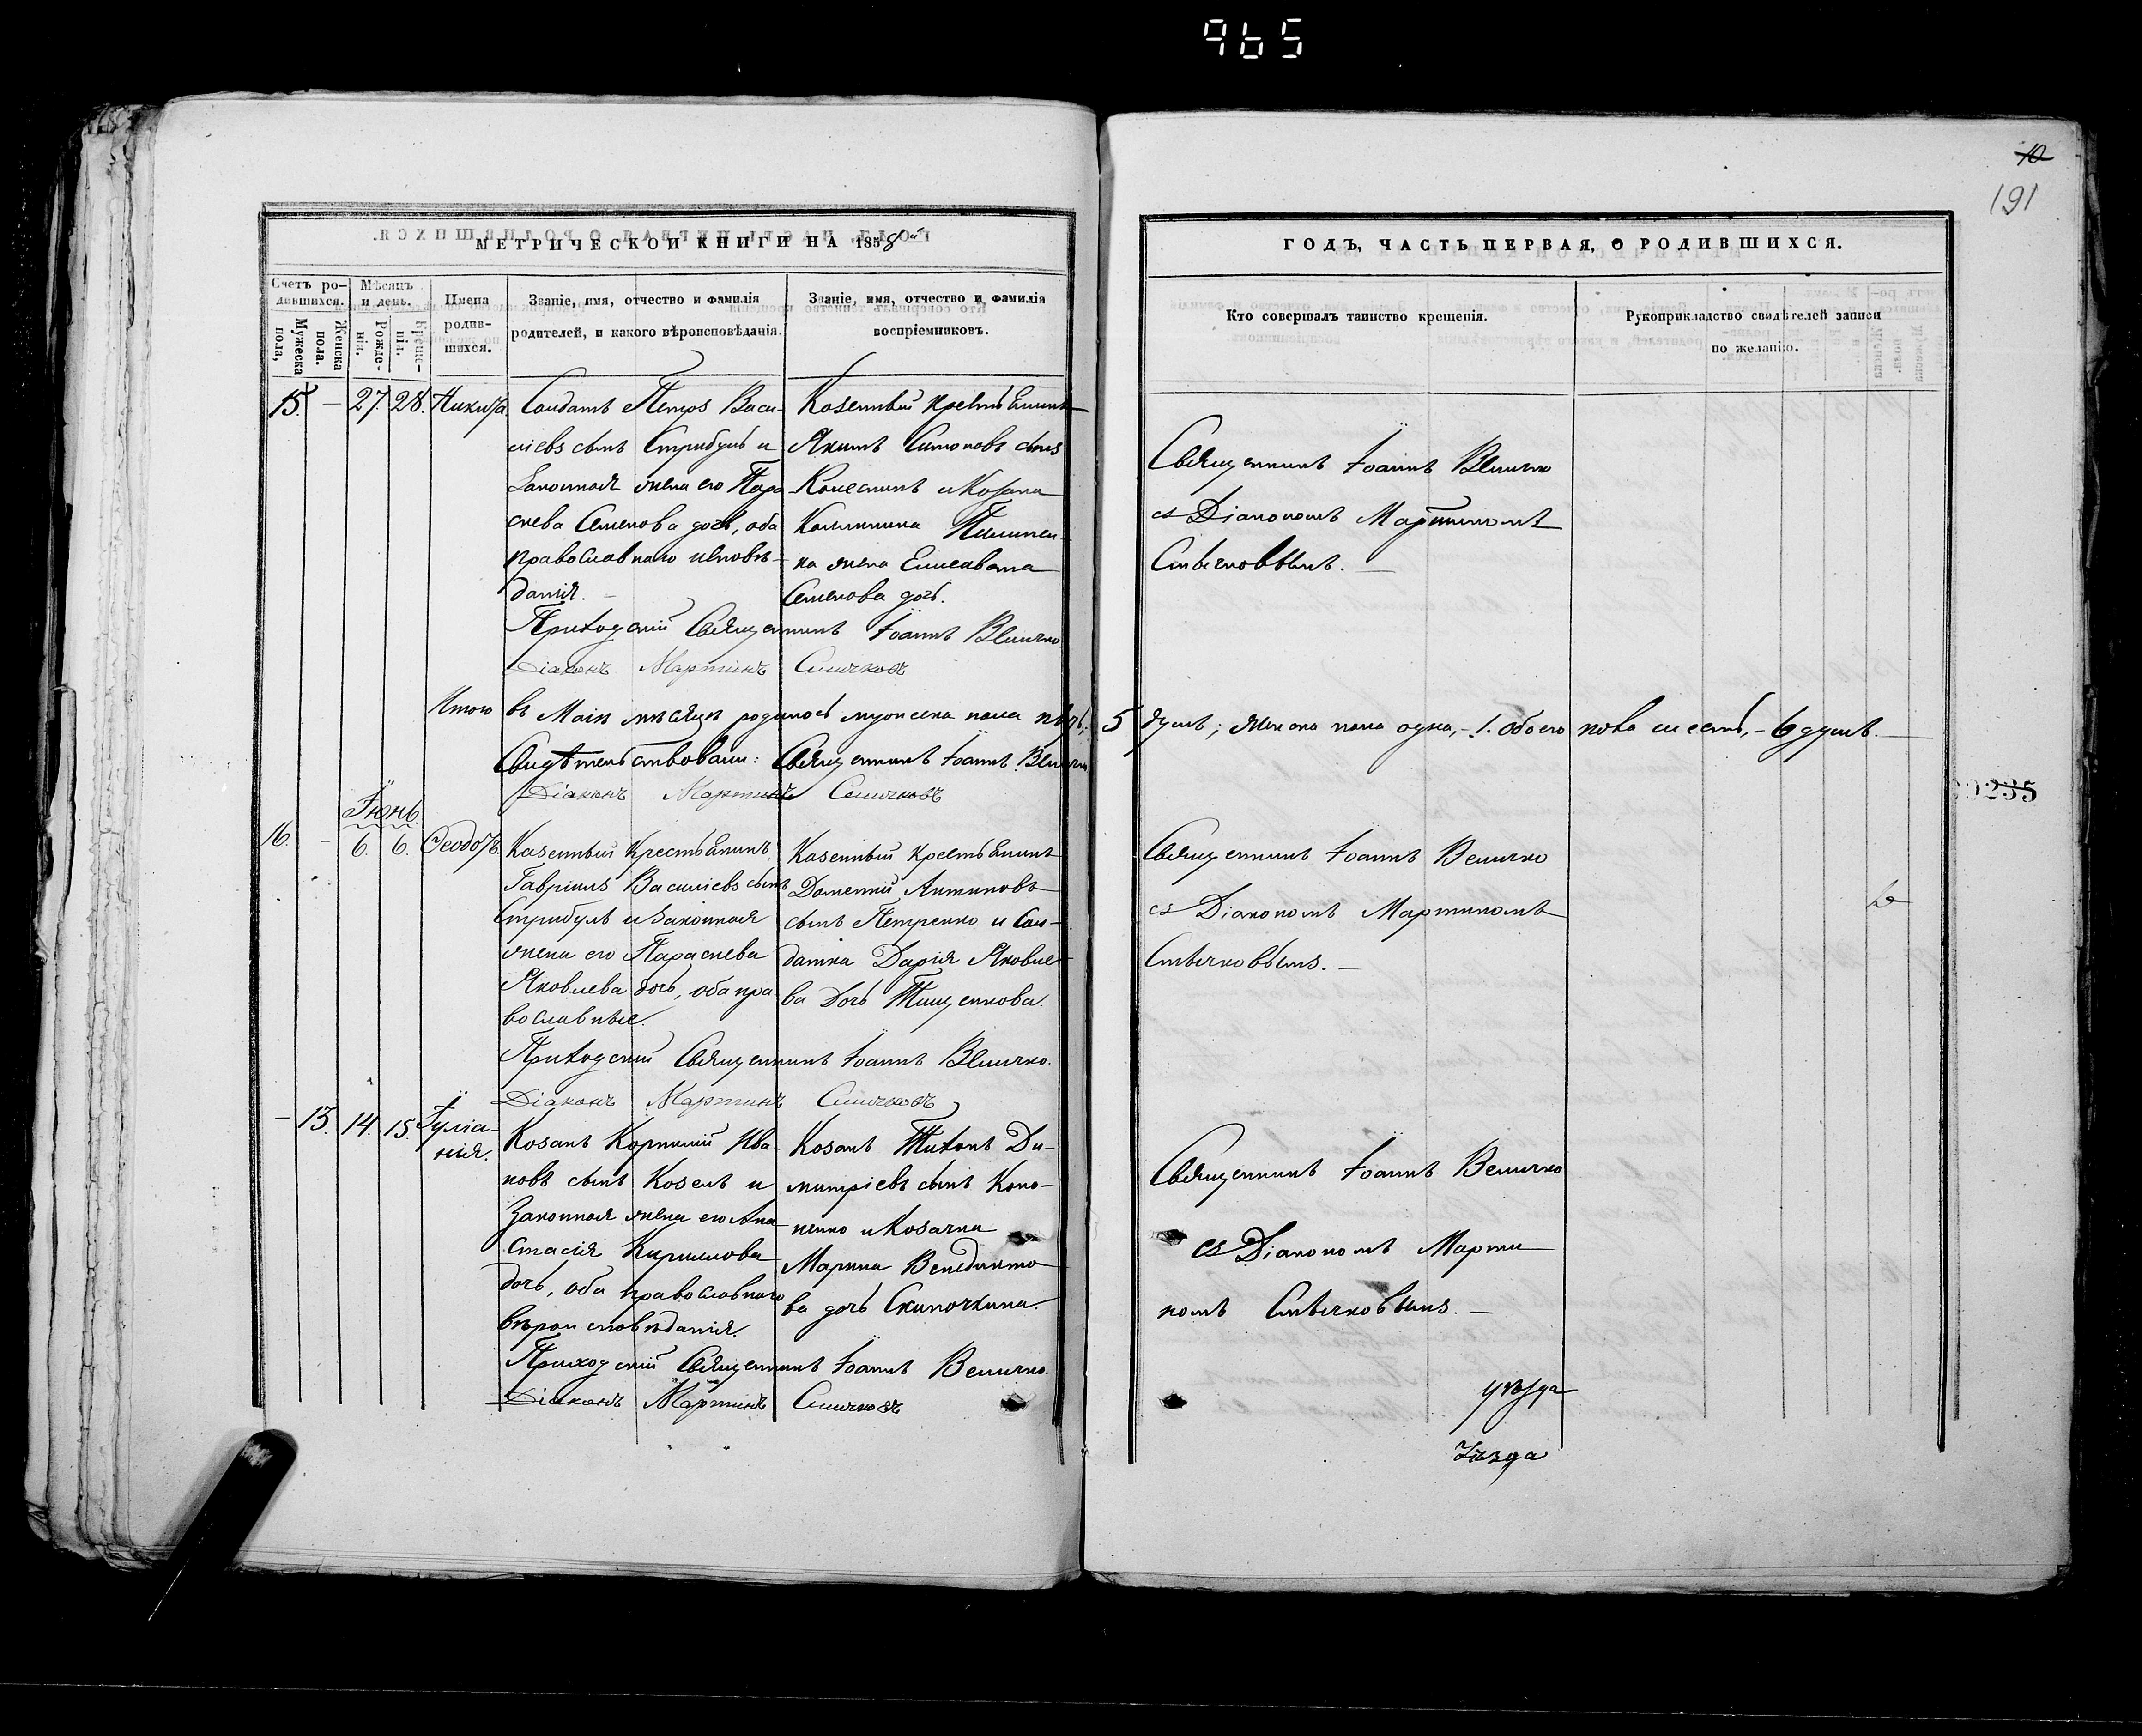 965
10
191
МЕТРИЧЕСКОЙ КНИГИ НА 1858й
Счетъ ро-
дившихся.
Мужеска
пола,
Женска
пола.
Мѣсяцъ
и день.
Рожде-
нія.
Креще-
нія.
Имена
родив-
шихся.
Званіе, имя, отчество и фамилія
родителей, и какого вѣроисповѣданія.
Званіе, имя, отчество и фамилія
воспріемниковъ.
15. — 27. 28. Никита
Солдатъ Петръ Васи-
ліевъ сынъ Стрибулъ и
Законная жена его Пара-
скева Семенова дочь, оба
православнаго исповѣ-
данія. —
Казенный крестьянинъ
Якимъ Симоновъ сынъ
Колесникъ и Козака
жена Елисавета
Семенова дочь.
Приходскій Священникъ Іоаннъ Величко
Діаконъ Мартинъ
Итого въ Маіѣ мѣсяцѣ родилось мужеска пола пять,
Свидѣтельствовали: Священникъ Іоаннъ Величко
Діаконъ Мартинъ
Іюнь.
16. — 6. 6. Феодотъ.
Казенный Крестьянинъ
Гавріилъ Василіевъ сынъ
Стрибулъ и Законная
жена его Параскева
Яковлева дочь, оба пра-
вославные.
Казенный крестьянинъ
Дометій Антиповъ
сынъ Петренко и Сол-
датка Дарія Яковле-
ва дочь Тищенкова.
Приходскій Священникъ Іоаннъ Величко.
Діаконъ Мартинъ
— 13. 14. 15. Іуліа-
нія.
Козакъ Корнилій Ива-
новъ сынъ Козелъ и
Законная жена его Ана-
стасія Кириллова
дочь, оба православнаго
вѣроисповѣданія.
Козакъ Тихонъ Ди-
митріевъ сынъ Коно-
ненко и Козачка
Марина Венедикто-
ва дочь
Приходскій Священникъ Іоаннъ Величко.
Діаконъ Мартинъ
ГОДЪ, ЧАСТЬ ПЕРВАЯ, О РОДИВШИХСЯ.
Кто совершалъ таинство крещенія.
Рукоприкладство свидѣтелей записи
по желанію.
Священникъ Іоаннъ Величко
съ Діакономъ Мартиномъ
5 душъ; женска пола одна,- 1. Обоего пола шесть, - 6 душъ. —
235
Священникъ Іоаннъ Величко
съ Діакономъ Мартиномъ
Священникъ Іоаннъ Величко
съ Діакономъ Марти
номъ
уѣзда
Уѣзда